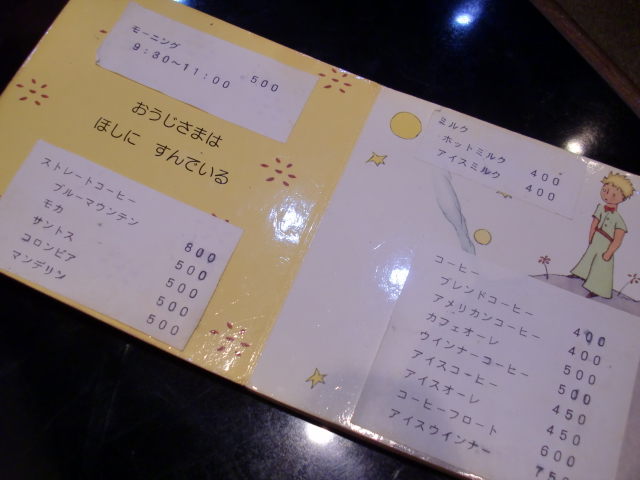 モーニング
9:30〜11:00 500
おうじさまは
ほしに すんでいる
ストレートコーヒー
ブルーマウンテン 800
モカ 500
サントス 500
コロンビア 500
マンデリン 500
ミルク
ホットミルク 400
アイスミルク 400
コーヒー
ブレンドコーヒー 400
アメリカンコーヒー 400
カフェオーレ 500
ウインナーコーヒー 500
アイスコーヒー 450
アイスオーレ 450
コーヒーフロート 600
アイスウインナー